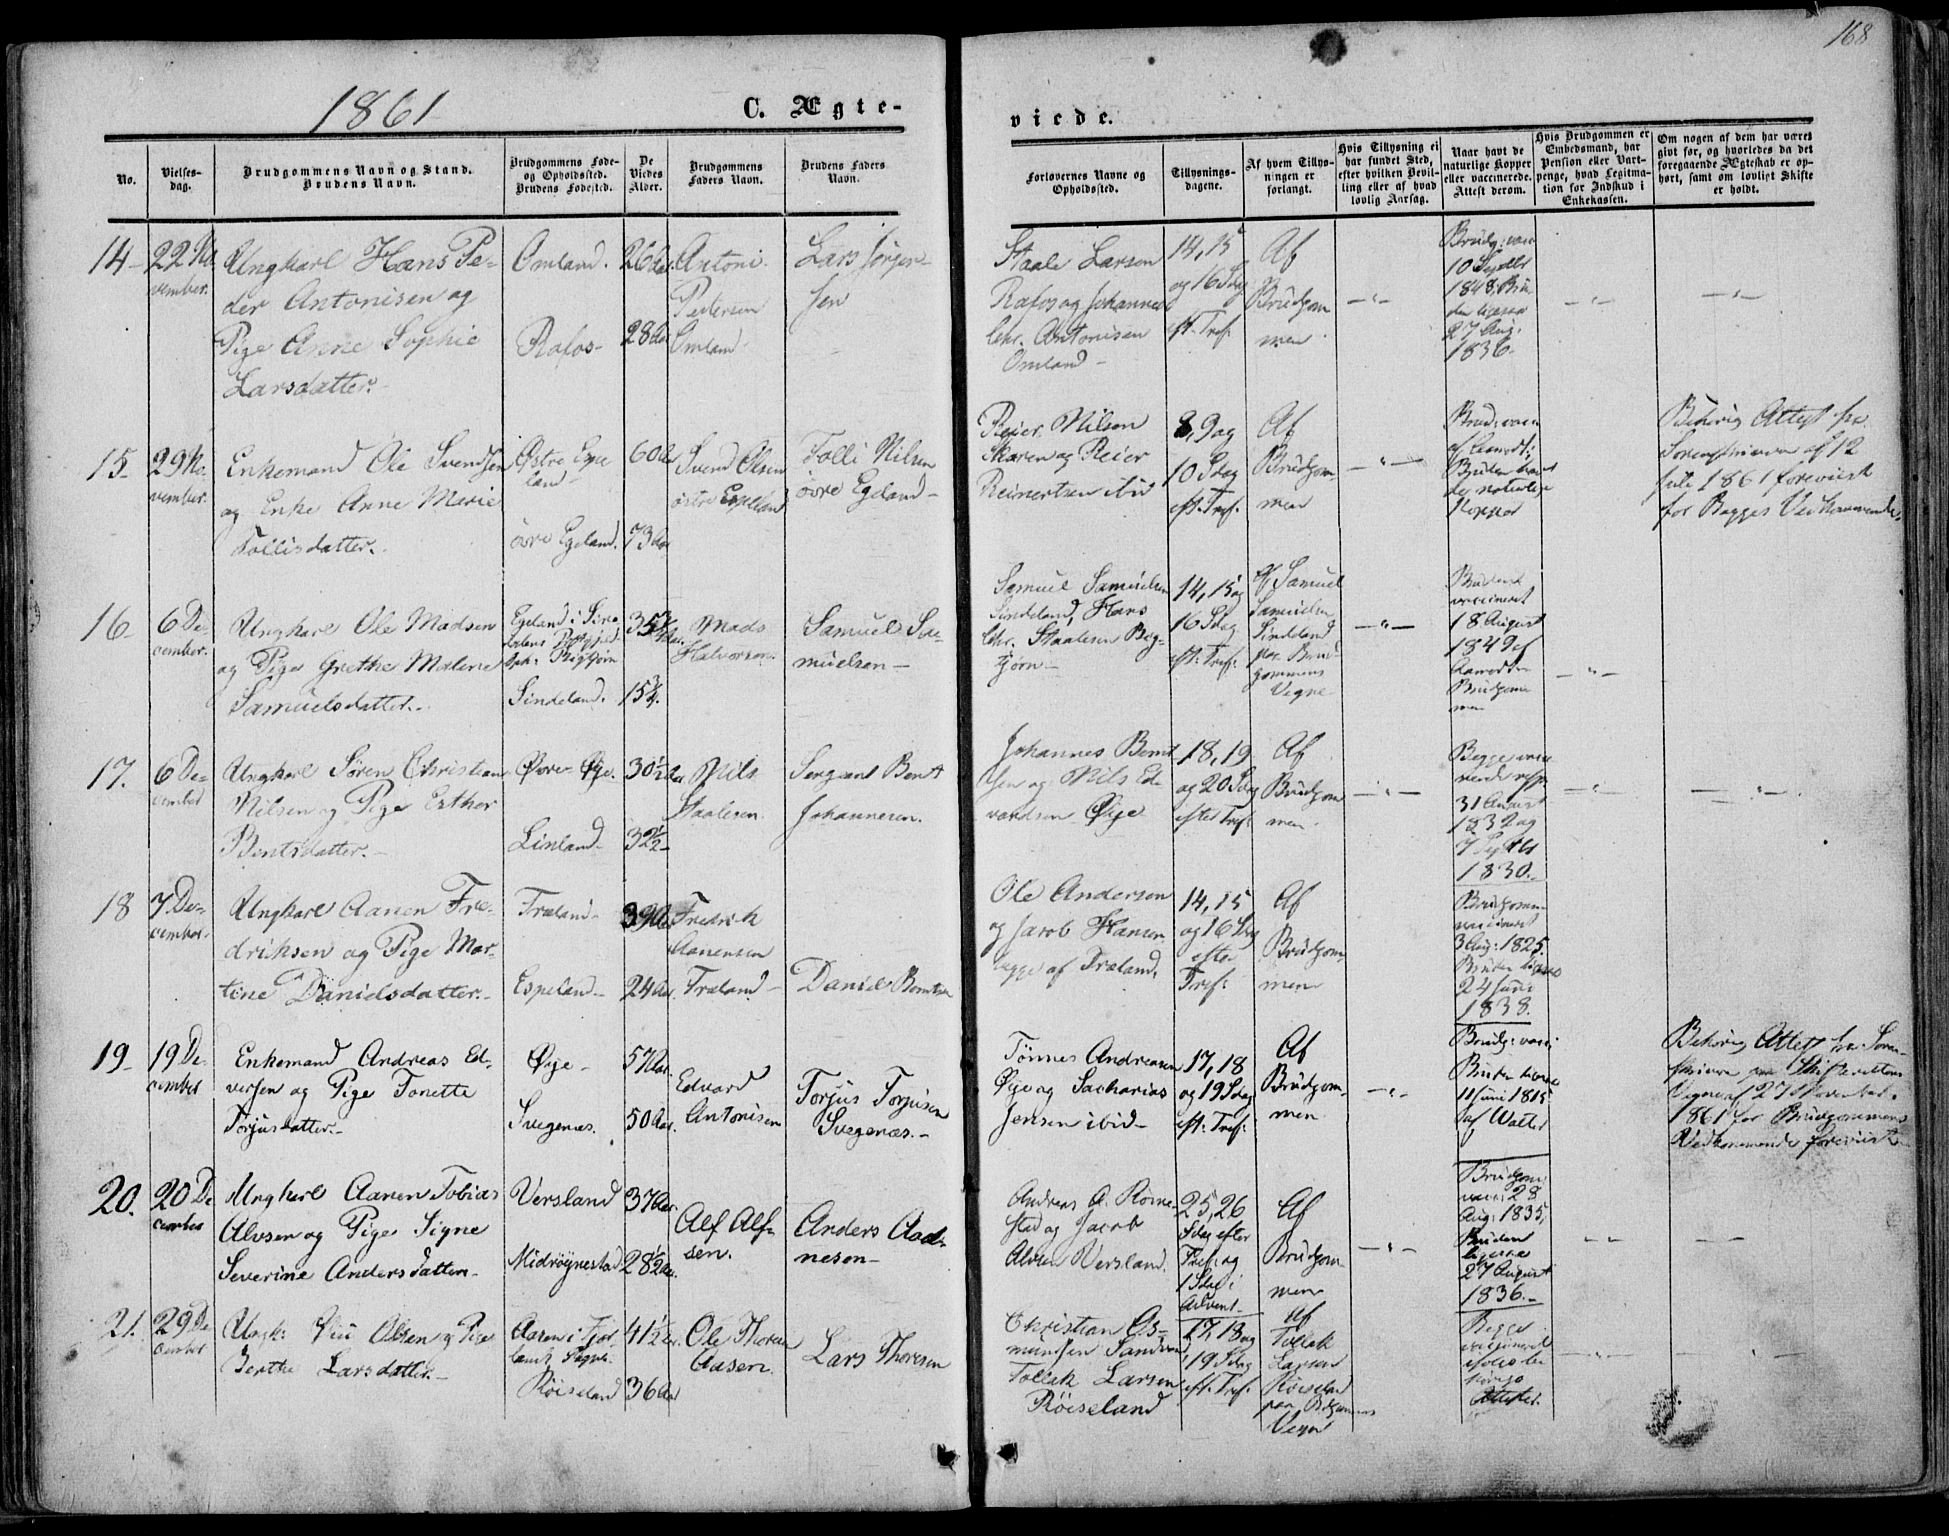 168
1861
C. Ægte-
viede.
No.
Vielses-
dag.
Brudgommens Navn og Stand.
Brudens Navn.
Brudgommens Føde-
og Opholdssted.
Brudens Fødested.
De
Viedes
Alder.
Brudgommens
Faders Navn.
Brudens Faders
Navn.
Forlovernes Navne og
Opholdssted.
Tillysnings-
dagene.
Af hvem Tillys-
ningen er
forlangt.
Hvis Tillysning ei
har fundet Sted,
efter hvilken Bevil-
ling eller af hvad
lovlig Aarsag.
Naar havt de
naturlige Kopper
eller vaccinerede.
Attest derom.
Hvis Brudgommen er
Embedsmand, har
Pension eller Vart-
penge, hvad Legitma-
tion for Indskud i
Enkekassen.
Om nogen af dem har været
gift før, og hvorledes da det
foregaaende Ægteskab er op-
hørt, samt om lovligt Skifte
er holdt.
14
22 No-
vember.
Ungkarl Hans Pe-
der Antonisen og
Pige Anne Sophie
Larsdatter.
Omland.
Rafos
26 Aar
28 Aar
Antoni
Pedersen
Omland
Lars Jørgen-
sen
Staale Larsen
Rafos og Johannes
Chr. Antonisen
Omland
14, 15
og 16 Sdag
eft. Tref.
Af
Brudgom
men
Brudg. vac.
10 Septbr
1848, Bru
den ligesaa
27 Aug.
1836
15.
29 No-
vember.
Enkemand Ole Svendsen
og Enke Anne Marie
Tollisdatter.
Østre Espe
land
øvre Egeland.
60 Aar
73 Aar
Svend Olsen
østre Espeland
Tolli Nilsen
øvre Egeland
Reier Nilsen
Skaren og Reier
Reinertsen ibid
8, 9 og
10 Sdag
eft. Tref.
Af
Brudgom-
men
Brud. vacc.
Bruden havt
de naturlige
Kopper
Behørig Attest fra
Sorenskriveren af 12
Juli 1861 foreviist
for Begges Vedkommende.
16
6 De-
cember.
Ungkarl Ole Madsen
og Pige Grethe Malene
Samuelsdatter.
Egeland i Sire
dalens Præstgjeld
Sindeland.
35 3/4 Aar.
15 3/4.
Mads
Halvorsen
Samuel Sa-
muelsen
Samuel Samuelsen
Sindeland, Hans
Chr. Staalesen Beg-
tjørn
14, 15 og
16 Sdag
eft. Tref.
Af Samuel
Samuelsen
Sindeland
paa Brud
gommens
Vegne
Bruden
vaccineret
18 August
1849 af
Brudgom
men
17.
6 De-
cember
Ungkarl Søren Christian
Nilsen og Pige Esther
Bentsdatter.
Øvre Øye
Linland
30 1/2 Aar
32 1/2
Nils
Staalesen
Sergeant Bent
Johannesen.
Johannes Bernt
sen og Nils Ed-
vardsen Øye
18, 19
og 20 Sdag
efter Tref.
Af
Brudgom
men
Begge vacci
nerede resp.
31 August
1832 og
7 Septbr
1830.
18
7 De-
cember.
Ungkarl Aanen Fre-
driksen og Pige Mar-
tine Danielsdatter.
Træland
Espeland
39 Aar
24 Aar.
Fredrik
Aanensen
Træland
Daniel Berntsen
Ole Andersen
og Jacob Hansen
begge af Træland.
14, 15
og 16 Sdag
efter
Tref.
Af
Brudgom
men
Brudgommen
vaccineret
3 Aug: 1825.
Bruden ligesaa
24 Juni
1838.
19
19 De-
cember
Enkemand Andreas Ed-
versen og Pige Tonette
Torjusdatter
Øye
Svegenæs.
57 Aar.
50 Aar.
Edvard
Antonisen
Torjus Torjusen
Svegenæs.
Tønnes Andreasen
Øye og Sacharias
Jensen ibid
17, 18
og 19 Sdag
eft. Tref.
Af
Brudgom-
men
Brudg: vacc:
Bruden ligesaa
11 Juni 1815
af Walter
Behørig Attest fra Soren-
skriveren paa Skifterettens
Vegne af 27 November
1861 for Brudgommens
Vedkommende foreviist
20.
20 De
cember
Ungkarl Aanen Tobias
Alvsen og Pige Signe
Severine Andersdatter
Versland
Midrøynestad
37 Aar.
28 1/2 Aar.
Alf Alf-
sen.
Anders Aad-
neson
Andreas A. Røine-
stad og Jacob
Alvsen Versland.
25, 26
Sdag efter
Tref. og
1 Sdag i
Advent
Af
Brudgom-
men
Brudgom.
vacc: 28
Aug: 1835,
Bruden
ligesaa
27 August
1836.
21.
29 De
cember
Ungk: Olsen og Pige
Berthe Larsdatter.
Aasen i Fjot
land Sogn
Røiseland
41 1/2 Aar
36 Aar
Ole Thoresen
Aasen.
Lars Thoresen
Christian As-
mundsen Sandven
Tollak Larsen
Røiseland
17, 18 og
19 Sdag
eft. Tref.
Af
Tollak
Larsen
Røiseland
paa Brudgommens
Vegne
Begge
vaccineret
ifølge
Attester.